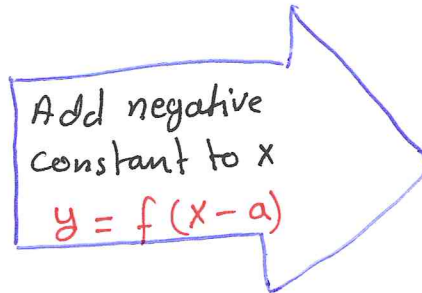 Add negative
constant to x
y = f(x-a)